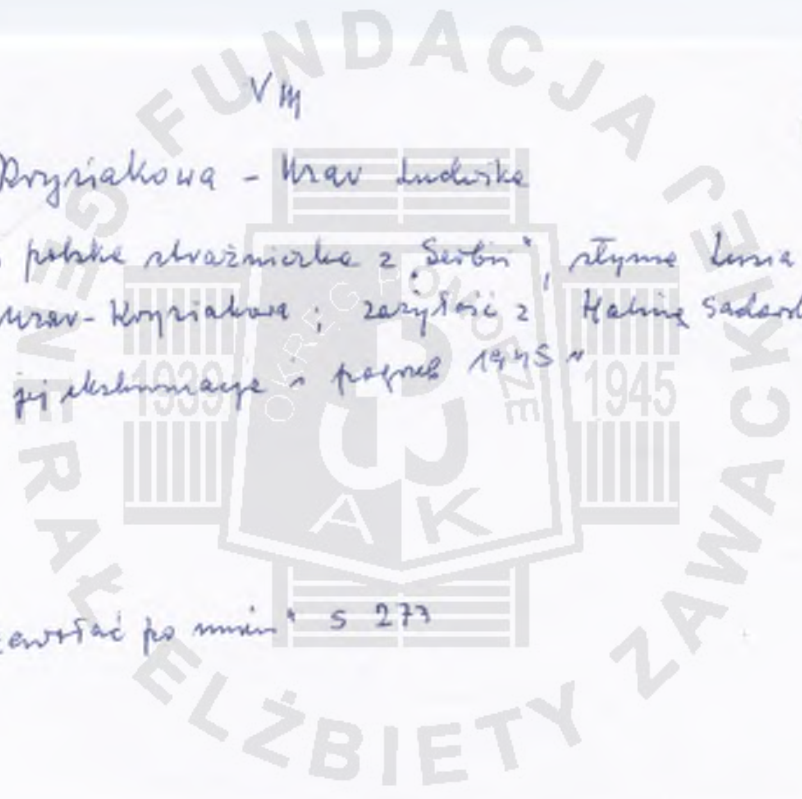 VM
Krysiakowa - Uzar Ludwika
polska strażniczka z "Serbii", słynna Lusia
Uzar-Krysiakowa; zażyłość z Haliną
jej ekshumacja i pogrzeb 1945"
zawołać po imieniu" s 273
FUNDACJA
GENERAŁ ELŻBIETY ZAWACKIEJ
OKRĘG POMORZE
1939
1945
AK